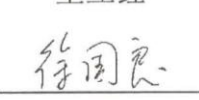 徐国良